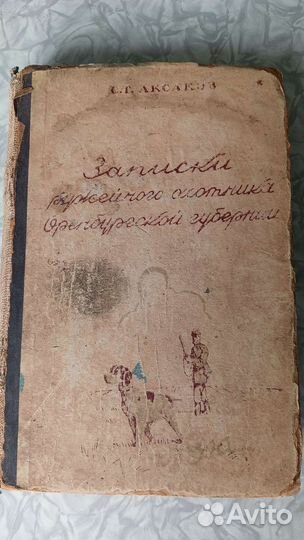 С.Т. АКСАКОВ
Записки
ружейного охотника
Оренбургской губернии
Avito